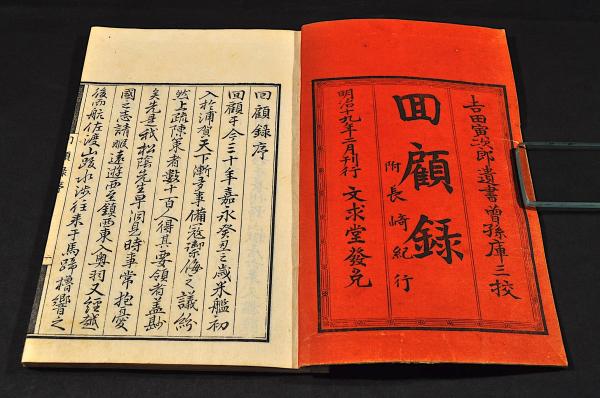 吉田寅次郎遺書曾孫庫三校
囬顧録
附長崎紀行
明治十九年二月刊行 文求堂發兌
囬顧録序
囬顧于今三十年嘉永癸丑之歳米艦初
入於浦賀天下漸多事備寇禦侮之議紛
然上疏陳策者數十百人得其要領者蓋尠
矣先是我松陰先生早洞見時事常抱憂
國之志請暇遠遊西至鎮西東入奥羽又經越
後而航佐渡山跋水渉往来于馬蹄櫓響之